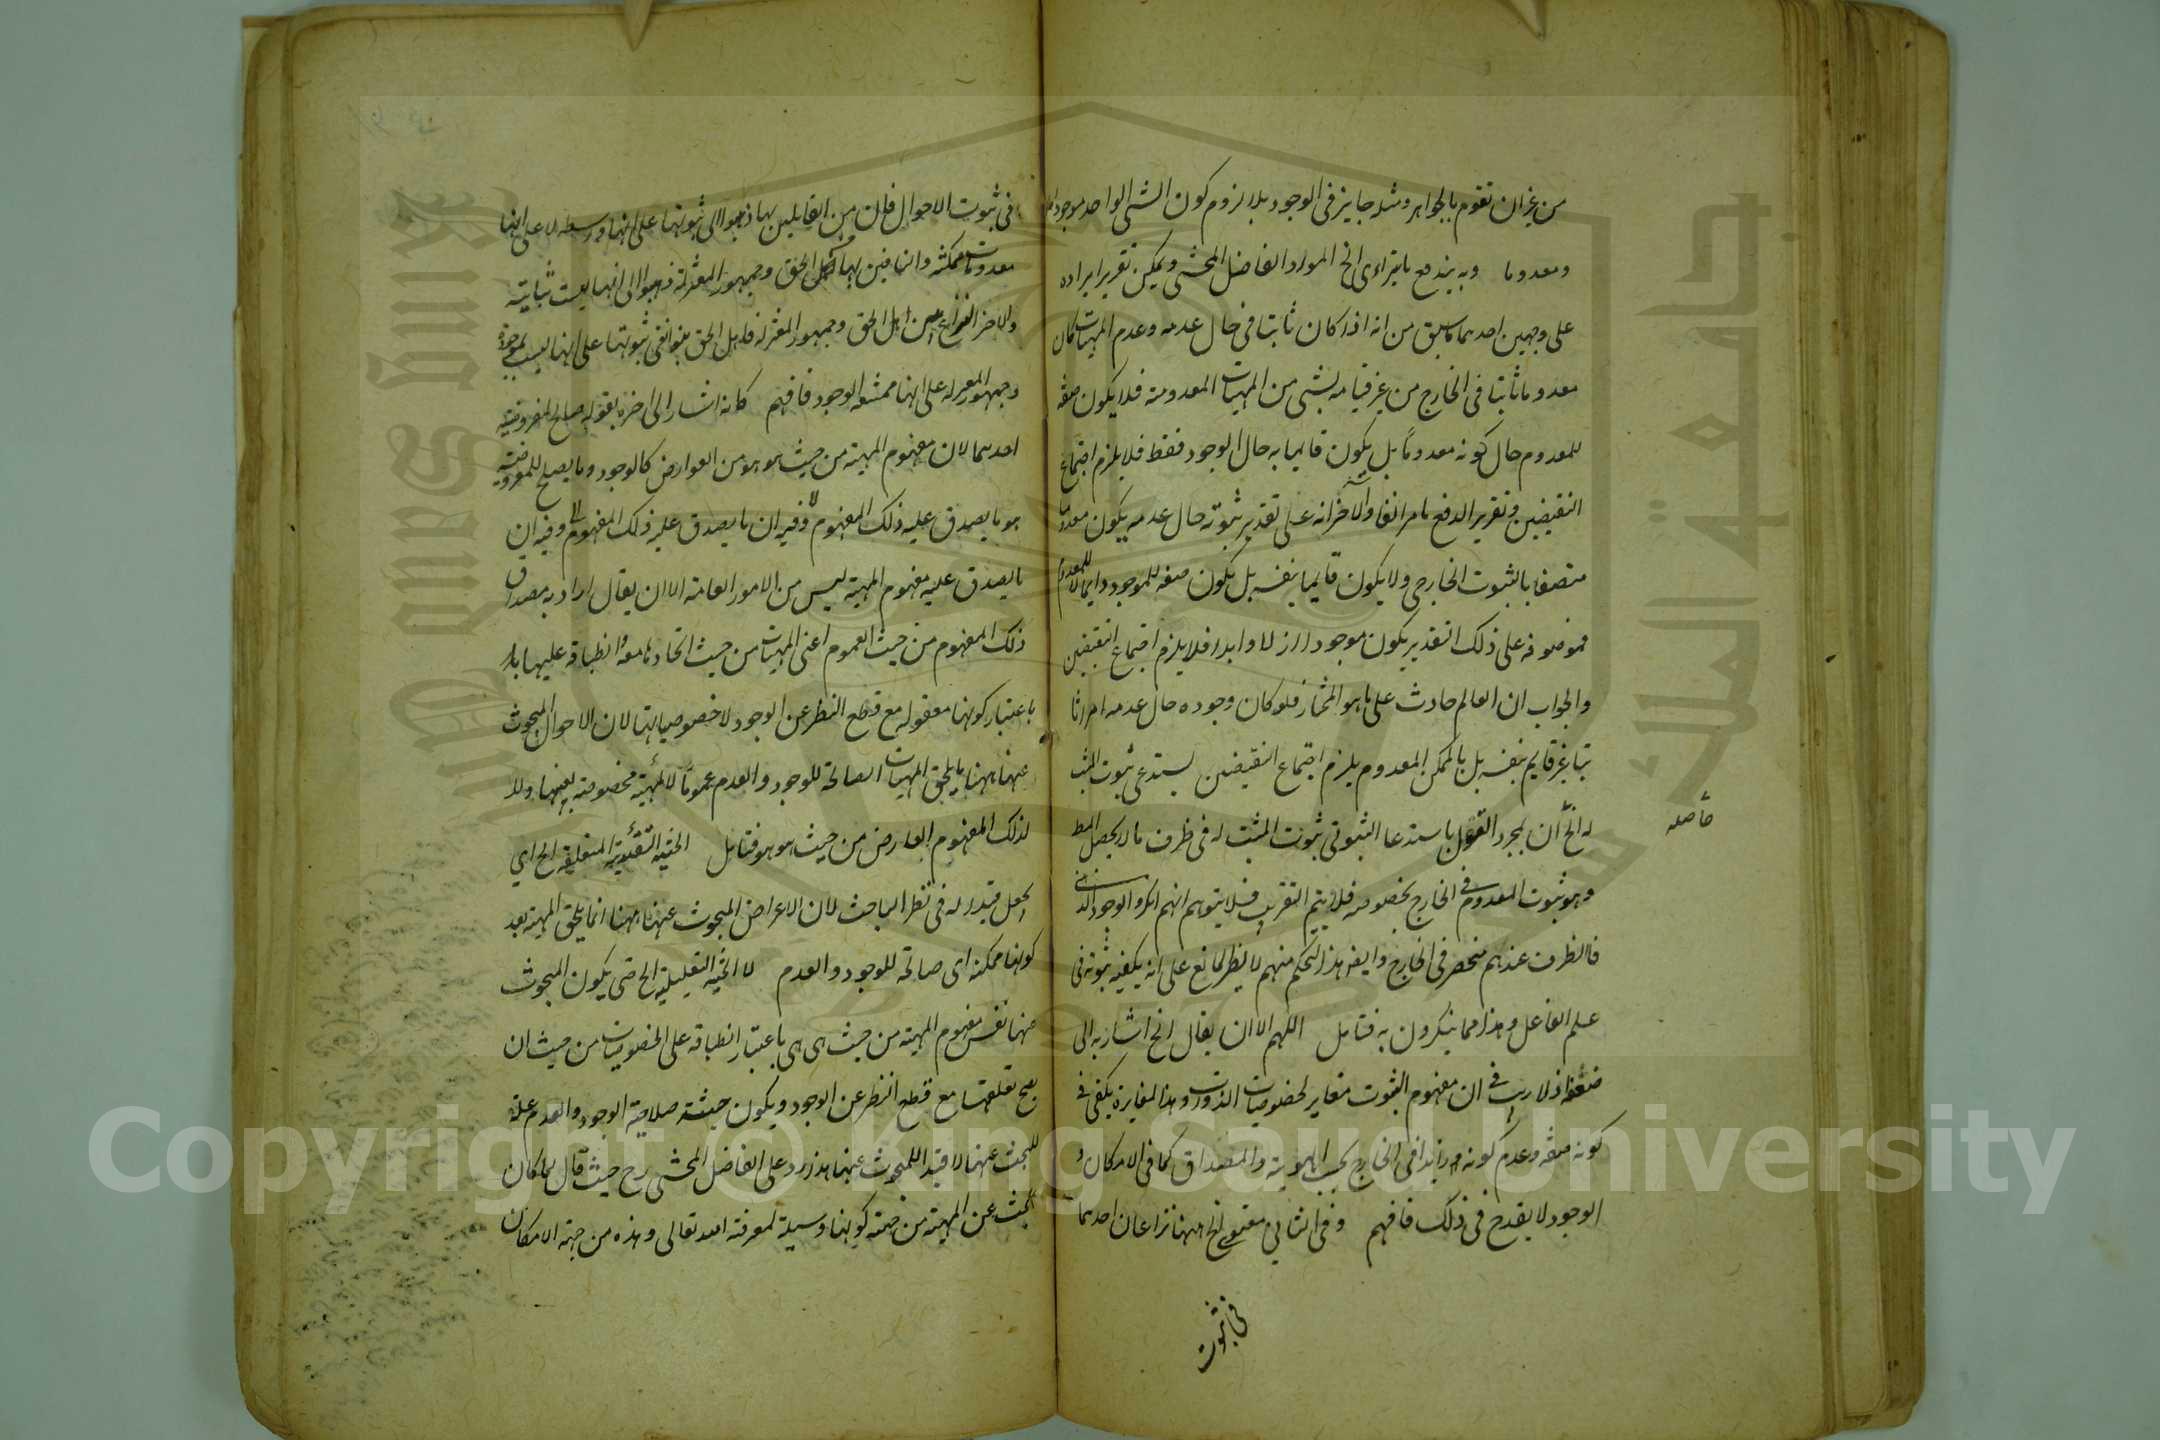 من غير ان تقوم بالجواهر ومثله جايز في الوجود بلا لزوم كون الشي الواحد موجودا
ومعدوما وبه يندفع ما يتراءى الخ المورد الفاضل المحشي ويمكن تقرير ايراده
على وجهين احدهما ما سبق من انه اذا كان ثابتا في حال عدمه وعدم المهيات كان
معدوما ثابتا في الخارج من غير قيامه بشي من المهيات المعدومة فلا يكون صفة
للمعدوم حال كونه معدوما بل يكون قايما به حال الوجود فقط فلا يلزم اجتماع
النقيضين وتقرير الدفع ما مر انفا والاخر انه على تقدير ثبوته حال عدمه يكون معدوما
متصفا بالثبوت الخارجي ولا يكون قايما بنفسه بل يكون صفة للموجود دايما لا للمعدوم
فموصوفه على ذلك التقدير يكون موجودا ازلا وابدا فلا يلزم اجتماع النقيضين
والجواب ان العالم حادث على ما هو المختار فلو كان وجوده حال عدمه امرا ثا
بتا غير قايم بنفسه بل بالممكن المعدوم يلزم اجتماع النقيضين يستدعي ثبوت المثبت
له الخ ان بمجرد القول باستدعا الثبوتي ثبوت المثبت له في ظرف ما لا يحصل المط
حاصله
وهو ثبوت المعدوم في الخارج بخصوصه فلا يتم التقريب فلا يتوهم انهم انكروا الوجود الذهني
فالظرف عندهم منحصر في الخارج وايضا هذا التحكم منهم لا يظر لمانع على انه يكفيه ثبوته في
علم الفاعل وهذا مما ينكرون به فتامل اللهم الا ان يقال الخ اشار به الى
ضعفه اذ لا ريب في ان مفهوم الثبوت مغاير لخصوصيات الذوات وهذا المغايرة يكفي في
كونه صفة وعدم كونه زايدا في الخارج بحسب الهوية والمصداق كما في الامكان و
الوجود لا يقدح في ذلك فافهم وفي الثاني الخ ههنا نزاعان احدهما
في ثبوت
في ثبوت الاحوال فان من القايلين بها ذهبوا الى ثبوتها على انها واسطة لا على انها
معدومات ممكنة والنافين بها كاهل الحق وجمهور المعتزلة ذهبوا الى انها ليست ثابتة
والاخر النزاع بين اهل الحق وجمهور المعتزلة فاهل الحق بنوا نفي ثبوتها على انها ليست بموجودة
وجمهور المعتزلة على انها ممتنعة الوجود فافهم كانه اشار الى اخره بقوله صالح المعروضية
احدهما لان مفهوم المهية من حيث هو هو من العوارض كالوجود وما يصلح للمعروضية
هو ما يصدق عليه ذلك المفهوم لا وفيه ان ما يصدق عليه ذلك المفهوم الخ وفيه ان
ما يصدق عليه مفهوم المهية ليس من الامور العامة الا ان يقال اراد به مصداق
ذلك المفهوم من حيث العموم اعني المهيات من حيث اتحادها معه وانطباقه عليها بل
باعتبار كونها معقولة مع قطع النظر عن الوجود لا خصوصياتها لان الاحوال المبحوث
عنها ههنا ما يلحق المهيات الصالحة للوجود والعدم عموما لا لمهية مخصوصة بعينها ولا
لذلك المفهوم العارض من حيث هو هو فتامل الحيثية التقييدية المتعلقة الخ اي
لجعل قيدا له في نظر الباحث لان الاعراض المبحوث عنها ههنا انما يلحق المهية بعد
كونها ممكنة اي صالحة للوجود والعدم لا الحيثية التعليلية الخ حتى يكون المبحوث
عنها نفس مفهوم المهية من حيث هي هي باعتبار انطباقه على الخصوصيات من حيث ان
يصح تعقلها مع قطع النظر عن الوجود ويكون حيثية صلاحية الوجود والعدم علة
للبحث عنها لا قيدا للمبحوث عنها هذا رد على الفاضل المحشي رح حيث قال لما كان
البحث عن المهية من جهة كونها وسيلة لمعرفة الله تعالى وهذه من جهة الامكان
Copyright © King Saud University
جامعة الملك سعود
King Saud University